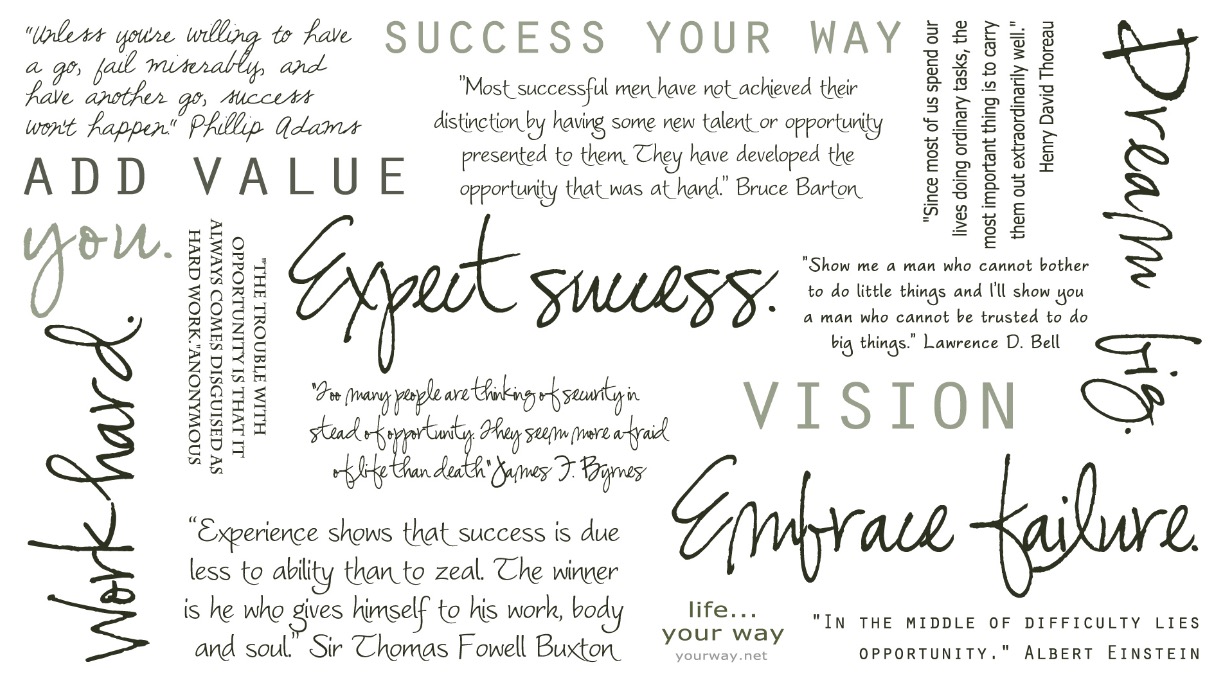 "Unless you're willing to have
a go, fail miserably, and
have another go, success
won't happen." Phillip Adams
SUCCESS YOUR WAY
"Most successful men have not achieved their
distinction by having some new talent or opportunity
presented to them. They have developed the
opportunity that was at hand." Bruce Barton
"Since most of us spend our
lives doing ordinary tasks, the
most important thing is to carry
them out extraordinarily well."
Henry David Thoreau
Dream big.
ADD VALUE
you.
"THE TROUBLE WITH
OPPORTUNITY IS THAT IT
ALWAYS COMES DISGUISED AS
HARD WORK."ANONYMOUS
Expect success.
"Show me a man who cannot bother
to do little things and I'll show you
a man who cannot be trusted to do
big things." Lawrence D. Bell
Work hard.
"Too many people are thinking of security in
stead of opportunity. They seem more afraid
of life than death" James F. Byrnes
VISION
Embrace failure.
"Experience shows that success is due
less to ability than to zeal. The winner
is he who gives himself to his work, body
and soul." Sir Thomas Fowell Buxton
life...
your way
yourway.net
"IN THE MIDDLE OF DIFFICULTY LIES
OPPORTUNITY." ALBERT EINSTEIN